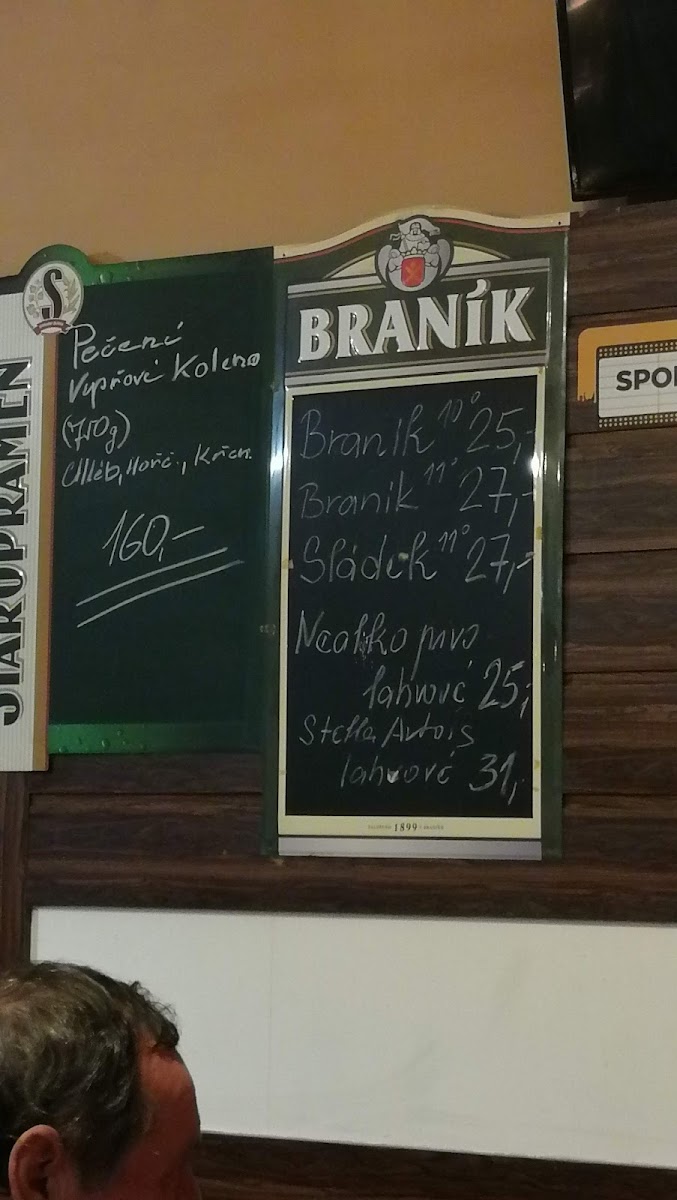 STAROPRAMEN
S
Pečené
Vepřové Koleno
(750g)
Chléb, Hořč., Křen
160,-
BRANÍK
Braník 10° 25,-
Braník 11° 27,-
Sládek 11° 27,-
Nealko pivo
lahvové 25,-
Stella Artois
lahvové 31,-
1899
SPO